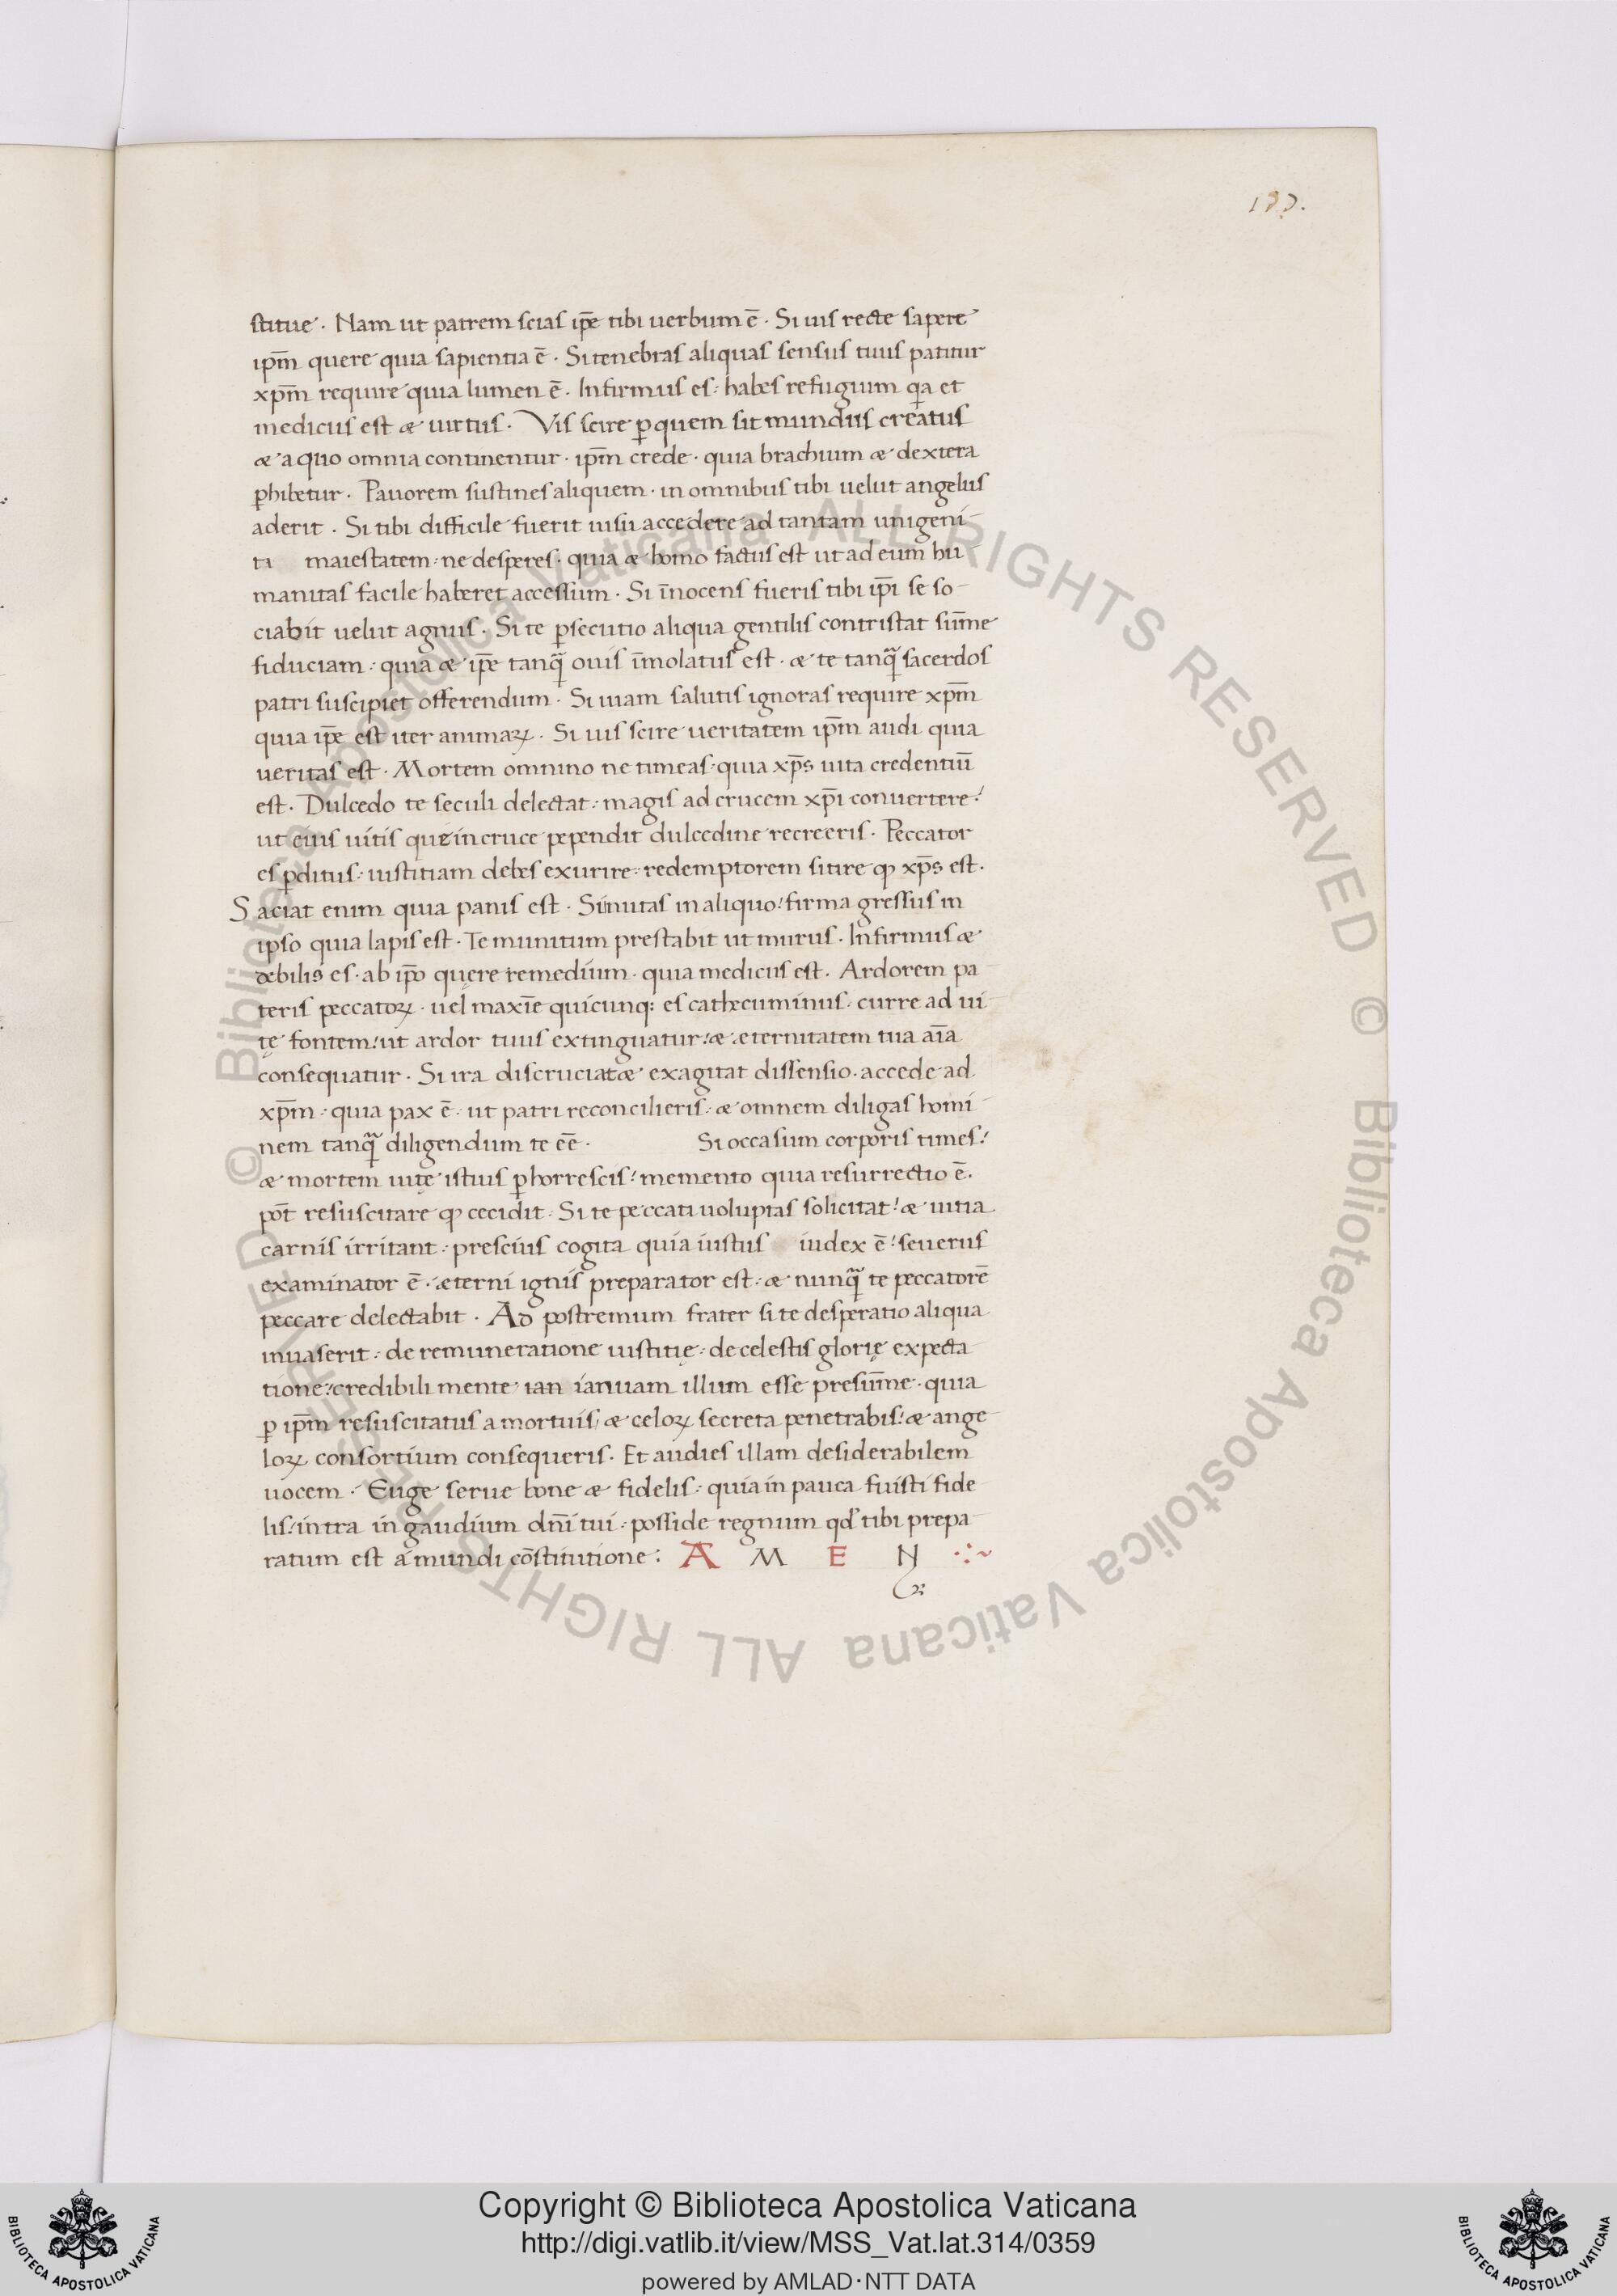 133.
stitue. Nam ut patrem scias ip̄e tibi uerbum ē. Si uis recte sapere
ip̄m quere quia sapientia ē. Si tenebras aliquas sensus tuus patitur
xp̄m require quia lumen ē. Infirmus es: habes refugium qa et
medicus est æ uirtus. Vis scire ꝑ quem sit mundus creatus
æ a quo omnia continentur. ip̄m crede. quia brachium æ dextera
ꝑhibetur. Pauorem sustines aliquem. in omnibus tibi uelut angelus
aderit. Si tibi difficile fuerit uisu accedere ad tantam unigeni-
ti maiestatem: ne desperes. quia æ homo factus est ut ad eum hu-
manitas facile haberet accessum. Si īnocens fueris tibi ip̄i se so-
ciabit uelut agnus. Si te ꝑsecutio aliqua gentilis contristat sum̄e
fiduciam: quia æ ip̄e tanq̄ ouis īmolatus est. æ te tanq̄ sacerdos
patri suscipiet offerendum. Si uiam salutis ignoras require xp̄m
quia ip̄e est iter animaꝝ. Si uis scire ueritatem ip̄m audi quia
ueritas est. Mortem omnino ne timeas: quia xp̄s uita credentiū
est. Dulcedo te seculi delectat: magis ad crucem xp̄i conuertere:
ut eius uitis que in cruce pependit dulcedine recreeris. Peccator
es ꝑditus: iustitiam debes exurire: redemptorem sitire ꝙ xp̄s est.
Saciat enim quia panis est. Si nutas in aliquo: firma gressus in
ipso quia lapis est. Te munitum prestabit ut murus. Infirmus æ
debilis es. ab ip̄o quęre remedium. quia medicus est. Ardorem pa-
teris peccatoꝝ. uel maxīe quicunq: es cathecuminus: curre ad ui-
tę fontem: ut ardor tuus extinguatur: æ æternitatem tua aīa
consequatur. Si ira discruciat æ exagitat dissensio. accede ad
xp̄m: quia pax ē: ut patri reconcilieris: æ omnem diligas homi-
nem tanq̄ diligendum te eē. Si occasum corporis times:
æ mortem uitę istius ꝑhorrescis: memento quia resurrectio ē.
pōt resuscitare ꝙ cecidit. Si te peccati uoluptas solicitat: æ uitia
carnis irritant: prescius cogita quia iustus iudex ē: seuerus
examinator ē. æterni ignis preparator est: æ nunq̄ te peccatorē
peccare delectabit. Ad postremum frater si te desperatio aliqua
inuaserit: de remuneratione iustitię: de celestis glorię expecta-
tione: credibili mente ian ianuam illum esse presum̄e. quia
ꝑ ip̄m resuscitatus a mortuis, æ celoꝝ secreta penetrabis: æ ange-
loꝝ consortium consequeris. Et audies illam desiderabilem
uocem. Euge serue bone æ fidelis: quia in pauca fuisti fide-
lis: intra in gaudium dn̄i tui: posside regnum qd tibi prepa-
ratum est a mundi cōstitutione: A M E N
© Biblioteca Apostolica Vaticana ALL RIGHTS RESERVED © Biblioteca Apostolica Vaticana ALL RIGHTS RESERVED
Copyright © Biblioteca Apostolica Vaticana
http://digi.vatlib.it/view/MSS_Vat.lat.314/0359
powered by AMLAD·NTT DATA
BIBLIOTECA APOSTOLICA VATICANA
BIBLIOTECA APOSTOLICA VATICANA